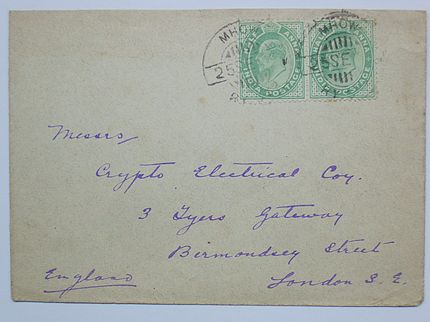 MHOW
MHOW
25 SE
HALF ANNA
INDIA POSTAGE
Messrs
Crypto Electrical Coy.
3 Tyers Gateway
Bermondsey Street
England London S. E.